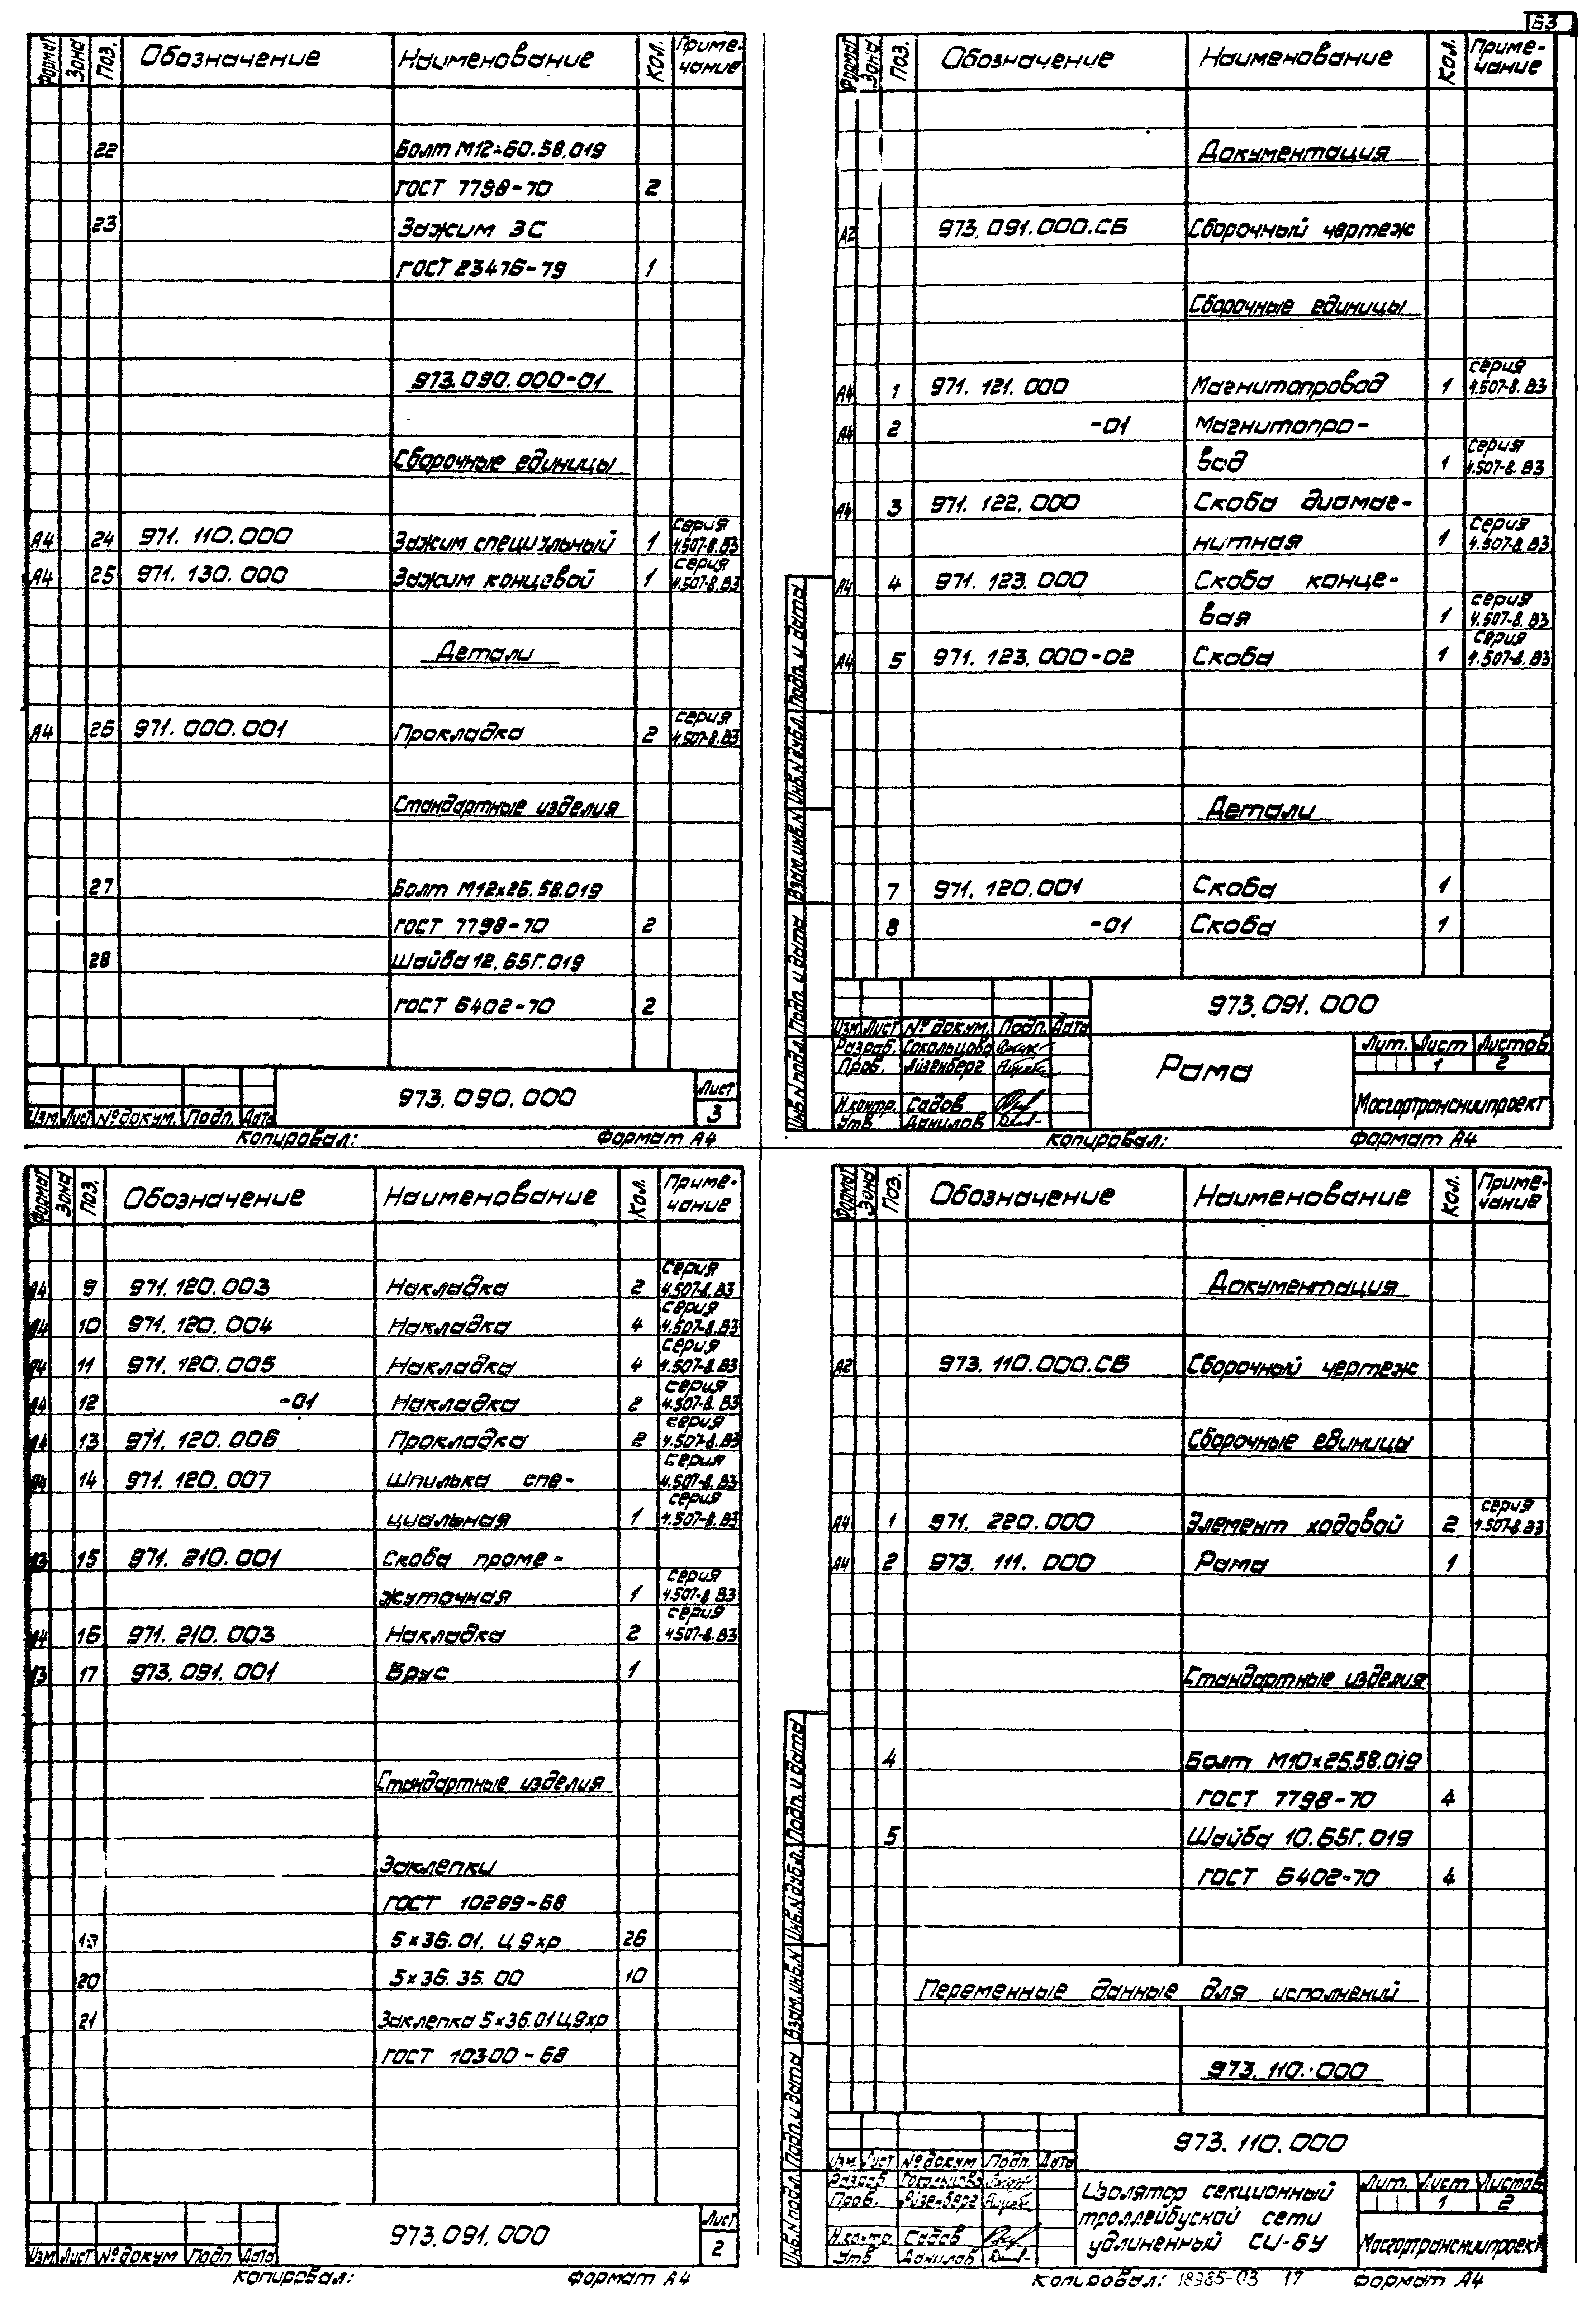 63
Формат Зона Поз. Обозначение Наименование Кол. Приме-
чание
22 Болт М12×60.58.019
ГОСТ 7798-70 2
23 Зажим 3С
ГОСТ 23476-79 1
973.090.000-01
Сборочные единицы
А4 24 971.110.000 Зажим специальный 1 серия 4.507-8.В3
А4 25 971.130.000 Зажим концевой 1 серия 4.507-8.В3
Детали
А4 26 971.000.001 Прокладка 2 серия 4.507-8.В3
Стандартные изделия
27 Болт М12×25.58.019
ГОСТ 7798-70 2
28 Шайба 12.65Г.019
ГОСТ 6402-70 2
973.090.000 Лист
Изм. Лист № докум. Подп. Дата 3
Копировал: Формат А4
Формат Зона Поз. Обозначение Наименование Кол. Приме-
чание
Документация
А2 973.091.000.СБ Сборочный чертеж
Сборочные единицы
А4 1 971.121.000 Магнитопровод 1 серия 4.507-8.В3
А4 2 -01 Магнитопро-
вод 1 серия 4.507-8.В3
А4 3 971.122.000 Скоба диамаг-
нитная 1 серия 4.507-8.В3
А4 4 971.123.000 Скоба конце-
вая 1 серия 4.507-8.В3
А4 5 971.123.000-02 Скоба 1 серия 4.507-8.В3
Детали
7 971.120.001 Скоба 1
8 -01 Скоба 1
Инв.№ подл. Подп. и дата Взам.инв.№ Инв.№ дубл. Подп. и дата
973.091.000
Изм. Лист № докум. Подп. Дата
Разраб. Сокольцова
Пров. Айзенберг
Н.контр. Садов
Утв. Данилов
Рама
Лит. Лист Листов
1 2
Мосгортрансниипроект
Копировал: Формат А4
Формат Зона Поз. Обозначение Наименование Кол. Приме-
чание
А4 9 971.120.003 Накладка 2 серия 4.507-8.В3
А4 10 971.120.004 Накладка 4 серия 4.507-8.В3
А4 11 971.120.005 Накладка 4 серия 4.507-8.В3
А4 12 -01 Накладка 2 серия 4.507-8.В3
А4 13 971.120.006 Прокладка 2 серия 4.507-8.В3
А4 14 971.120.007 Шпилька спе- серия 4.507-8.В3
циальная 1 серия 4.507-8.В3
А3 15 971.210.001 Скоба проме-
жуточная 1 серия 4.507-8.В3
А4 16 971.210.003 Накладка 2 серия 4.507-8.В3
А3 17 973.091.001 Брус 1
Стандартные изделия
Заклепки
ГОСТ 10299-68
19 5×36.01.Ц9хр 26
20 5×36.35.00 10
21 Заклепка 5×36.01Ц9хр
ГОСТ 10300-68
973.091.000 Лист
Изм. Лист № докум Подп. Дата 2
Копировал: Формат А4
Формат Зона Поз. Обозначение Наименование Кол. Приме-
чание
Документация
А2 973.110.000.СБ Сборочный чертеж
Сборочные единицы
А4 1 971.220.000 Элемент ходовой 2 серия 4.507-8.В3
А4 2 973.111.000 Рама 1
Стандартные изделия
4 Болт М10×25.58.019
ГОСТ 7798-70 4
5 Шайба 10.65Г.019
ГОСТ 6402-70 4
Переменные данные для исполнений
973.110.000
Инв.№ подл. Подп. и дата Взам.инв.№ Инв.№ дубл. Подп. и дата
973.110.000
Изм. Лист № докум Подп. Дата
Разраб Сокольцова
Пров. Айзенберг
Н.контр. Садов
Утв Данилов
Изолятор секционный
троллейбусной сети
удлиненный СИ-6У
Лит. Лист Листов
1 2
Мосгортрансниипроект
Копировал: 18985-03 17 Формат А4